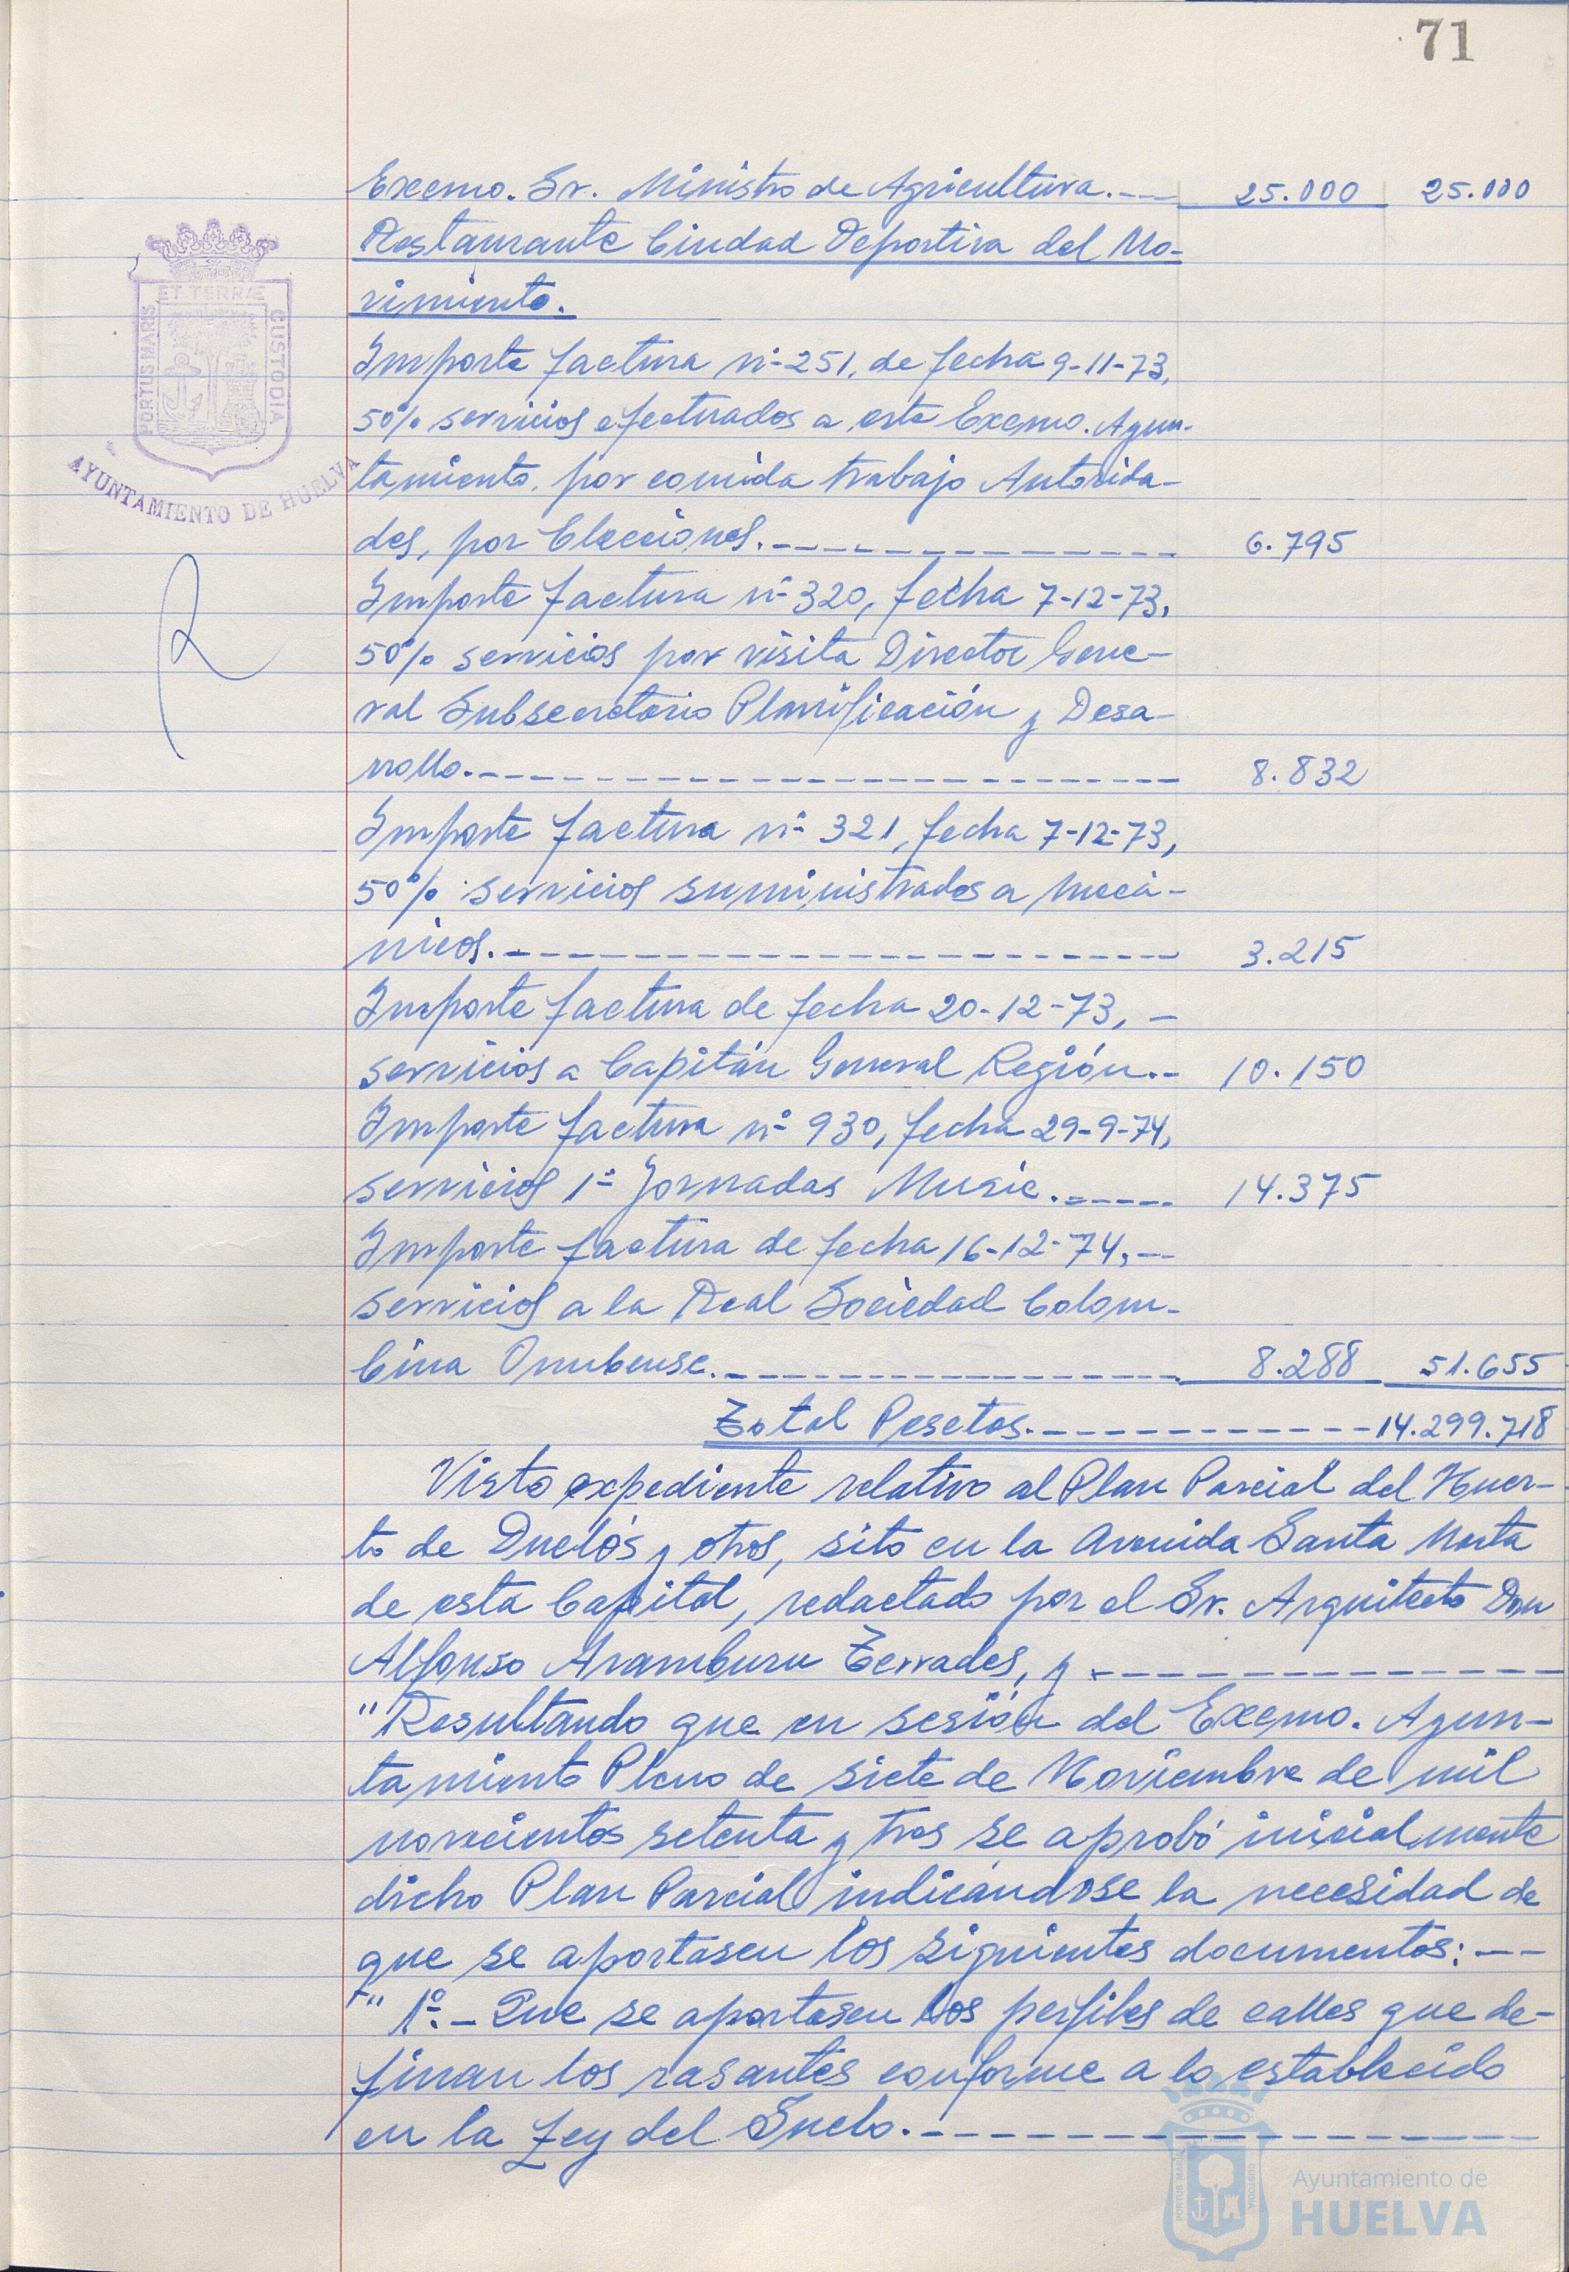 71
Excmo. Sr. Ministro de Agricultura.--- 25.000 25.000
Restaurante Ciudad Deportiva del Mo-
vimiento.
Importe factura nº 251, de fecha 9-11-73,
50% servicios efectuados a este Excmo. Ayun-
tamiento, por comida trabajo Autorida-
des, por Elecciones.------------- 6.795
Importe factura nº 320, fecha 7-12-73,
50% servicios por visita Director Gene-
ral Subsecretario Planificación y Desa-
rrollo.------------------------ 8.832
Importe factura nº 321, fecha 7-12-73,
50% servicios suministrados a mecá-
nicos.----------------------- 3.215
Importe factura de fecha 20-12-73, -
servicios a Capitán General Región.-- 10.150
Importe factura nº 930, fecha 29-9-74,
servicios 1ª Jornadas Music.------ 14.375
Importe factura de fecha 16-12-74, --
servicios a la Real Sociedad Colom-
bina Onubense.----------------- 8.288 51.655
Total Pesetas.------------14.299.718
Visto expediente relativo al Plan Parcial del Huer-
to de Duelos y otros, sito en la Avenida Santa Marta
de esta Capital, redactado por el Sr. Arquitecto Don
Alfonso Aramburu Terrades, y.-------------
"Resultando que en sesión del Excmo. Ayun-
tamiento Pleno de siete de Noviembre de mil
novecientos setenta y tres se aprobó inicialmente
dicho Plan Parcial indicándose la necesidad de
que se aportasen los siguientes documentos: ---
" 1º.- Que se aportasen los perfiles de calles que de-
finan los rasantes conforme a lo establecido
en la Ley del Suelo.------------------
PORTUS MARIS
ET TERRÆ
CUSTODIA
AYUNTAMIENTO DE HUELVA
Ayuntamiento de
HUELVA